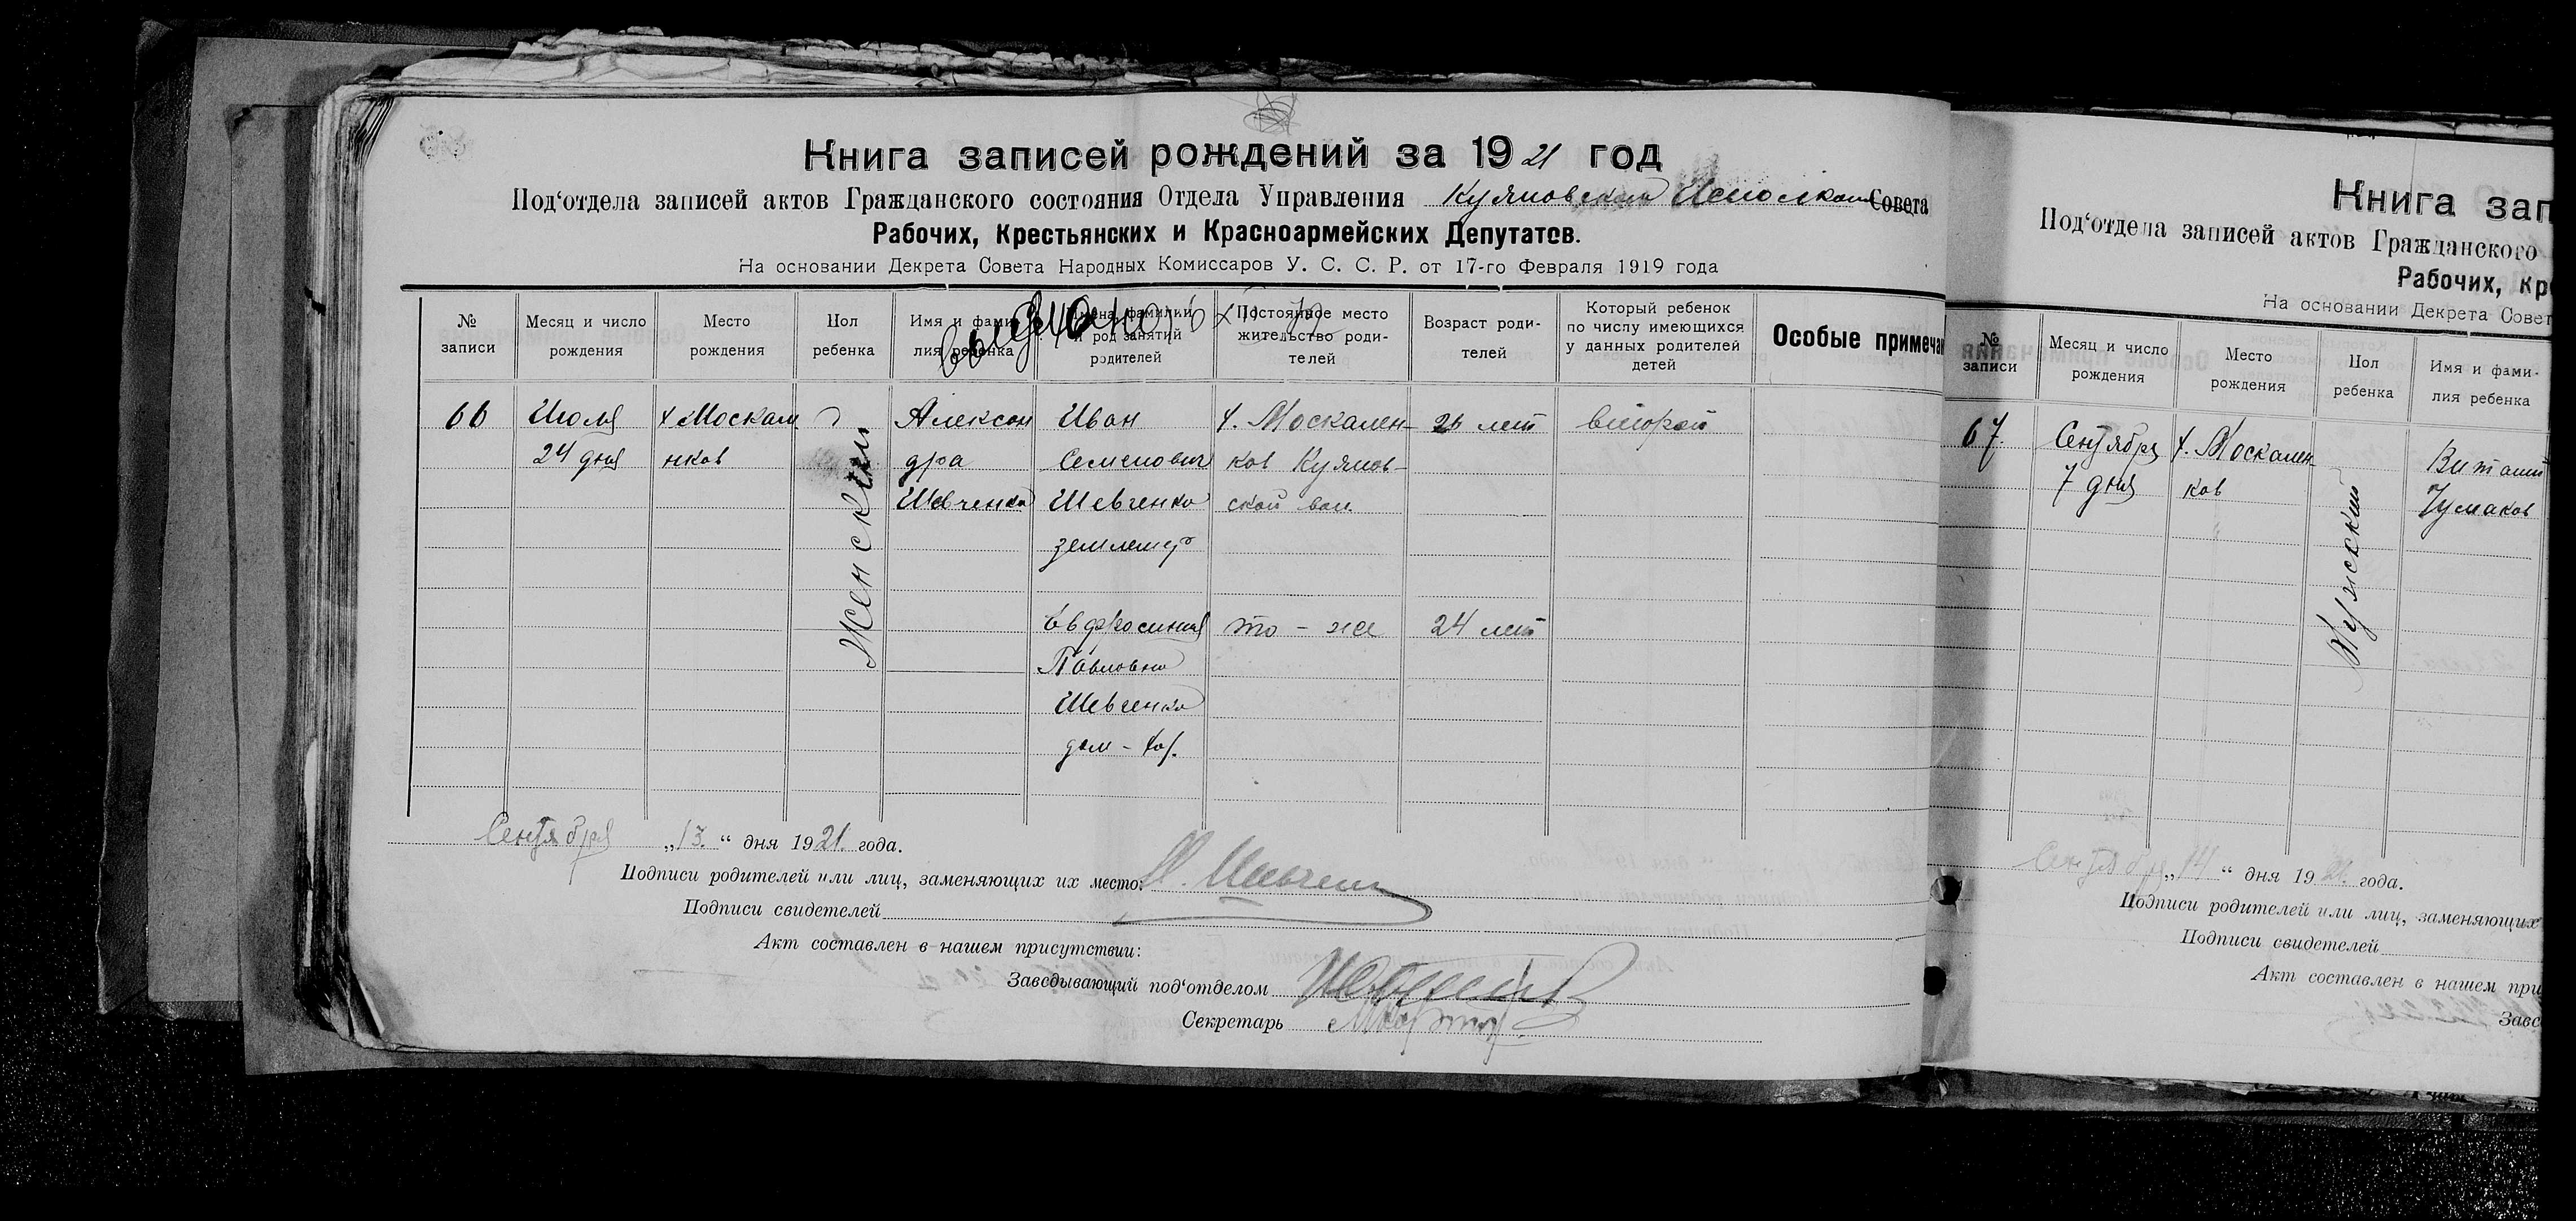 Книга записей рождений за 1921 год
Под‘отдела записей актов Гражданского состояния Отдела Управления Куяновский Исполком Совета
Рабочих, Крестьянских и Красноармейских Депутатов.
На основании Декрета Совета Народных Комиссаров У. С. С. Р. от 17-го Февраля 1919 года
№ записи
Месяц и число рождения
Место рождения
Пол ребенка
Имя и фамилия ребенка
Имена, фамилии и род занятий родителей
Постоянное место жительство родителей
Возраст родителей
Который ребенок по числу имеющихся у данных родителей детей
Особые примечан
66
Июля
24 дня
х Москале
нков
Женский
Алексан
дра
Шевченко
Иван
Семенович
Шевченко
землемер
х. Москален-
ков Куянов-
ской вол.
26 лет
второй
Евфросиния
Павловна
Шевченко
дом-хоз.
то-же
24 лет
Сентября „13.“ дня 1921. года.
Подписи родителей или лиц, заменяющих их место:
Подписи свидетелей
Акт составлен в нашем присутствии:
Заведывающий под‘отделом
Секретарь
Книга зап
Под‘отдела записей актов Гражданского
Рабочих, Кре
На основании Декрета Совет
№ записи
Месяц и число рождения
Место рождения
Пол ребенка
Имя и фами-
лия ребенка
67.
Сентября
7 дня
х. Москален-
ков
Мужский
Виталий
Чумаков
Сентября „14“ дня 1921. года.
Подписи родителей или лиц, заменяющих
Подписи свидетелей
Акт составлен в нашем при
Завс